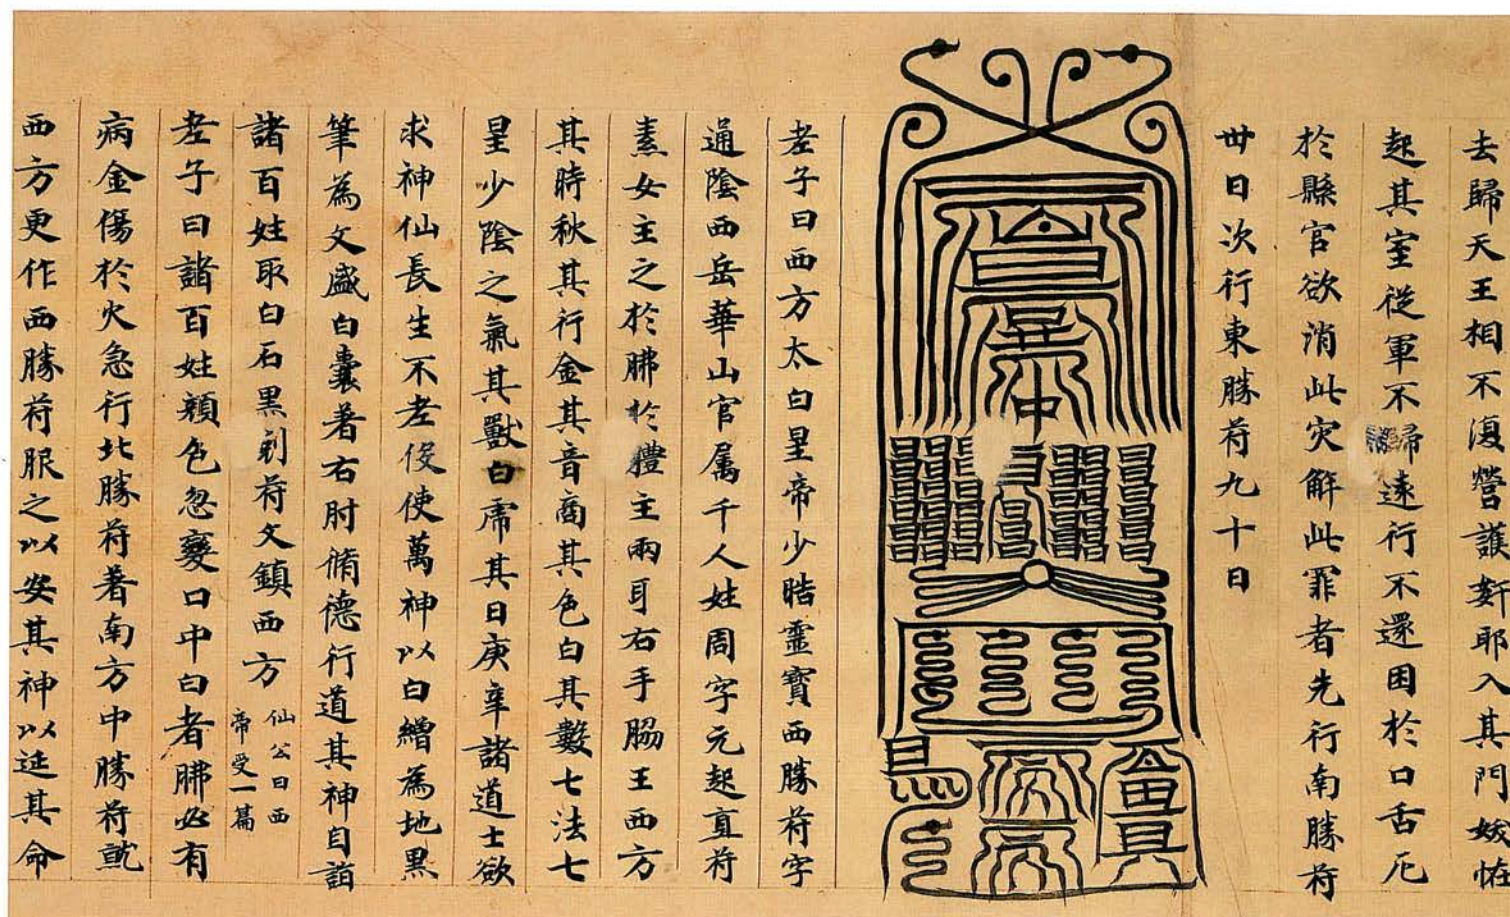 去歸天王相不復營護奸耶入其門妖恠
起其室從軍不歸遠行不還困於口舌厄
於縣官欲消此灾解此罪者先行南勝苻
卅日次行東勝苻九十日
老子曰西方太白皇帝少晧靈寶西勝苻字
通陰西岳華山官属千人姓周字元起直苻
素女主之於肺於禮主兩耳右手脇王西方
其時秋其行金其音商其色白其數七法七
星少陰之氣其獸白虎其日庚辛諸道士欲
求神仙長生不老役使萬神以白繒為地黑
筆為文盛白囊著右肘脩德行道其神自詣
諸百姓取白石黑剋苻文鎮西方 仙公曰西
帝受一篇
老子曰諸百姓顏色忽變口中白者肺必有
病金傷於火急行北勝苻著南方中勝苻就
西方更作西勝苻服之以安其神以延其命